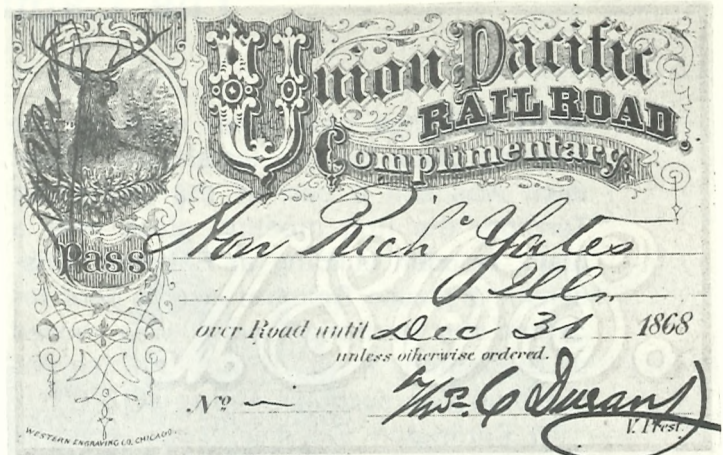 Union Pacific
RAIL ROAD.
Complimentary.
Pass Hon Richd Yates
Ills.
over Road until Dec 31 1868
unless otherwise ordered.
No —
Thos. C Durant
V. Prest.
WESTERN ENGRAVING CO, CHICAGO.